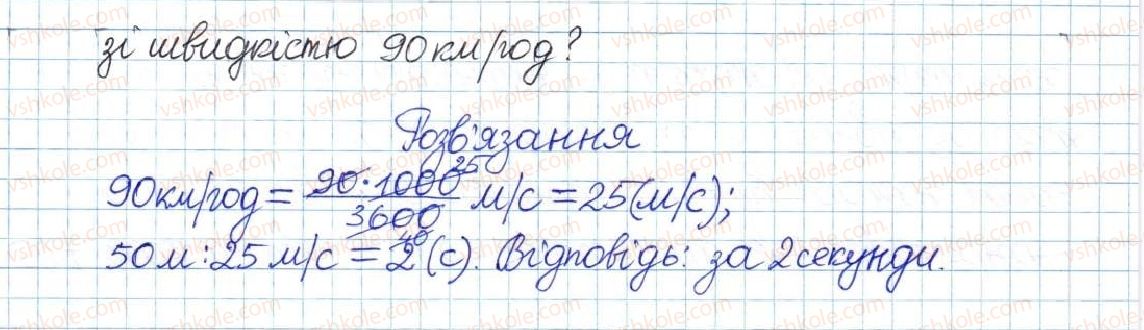 зі швидкістю 90 км/год?
Розв'язання
90 км/год = 90·1000/3600 м/с = 25 (м/с);
50 м : 25 м/с = 2 (с). Відповідь: за 2 секунди.